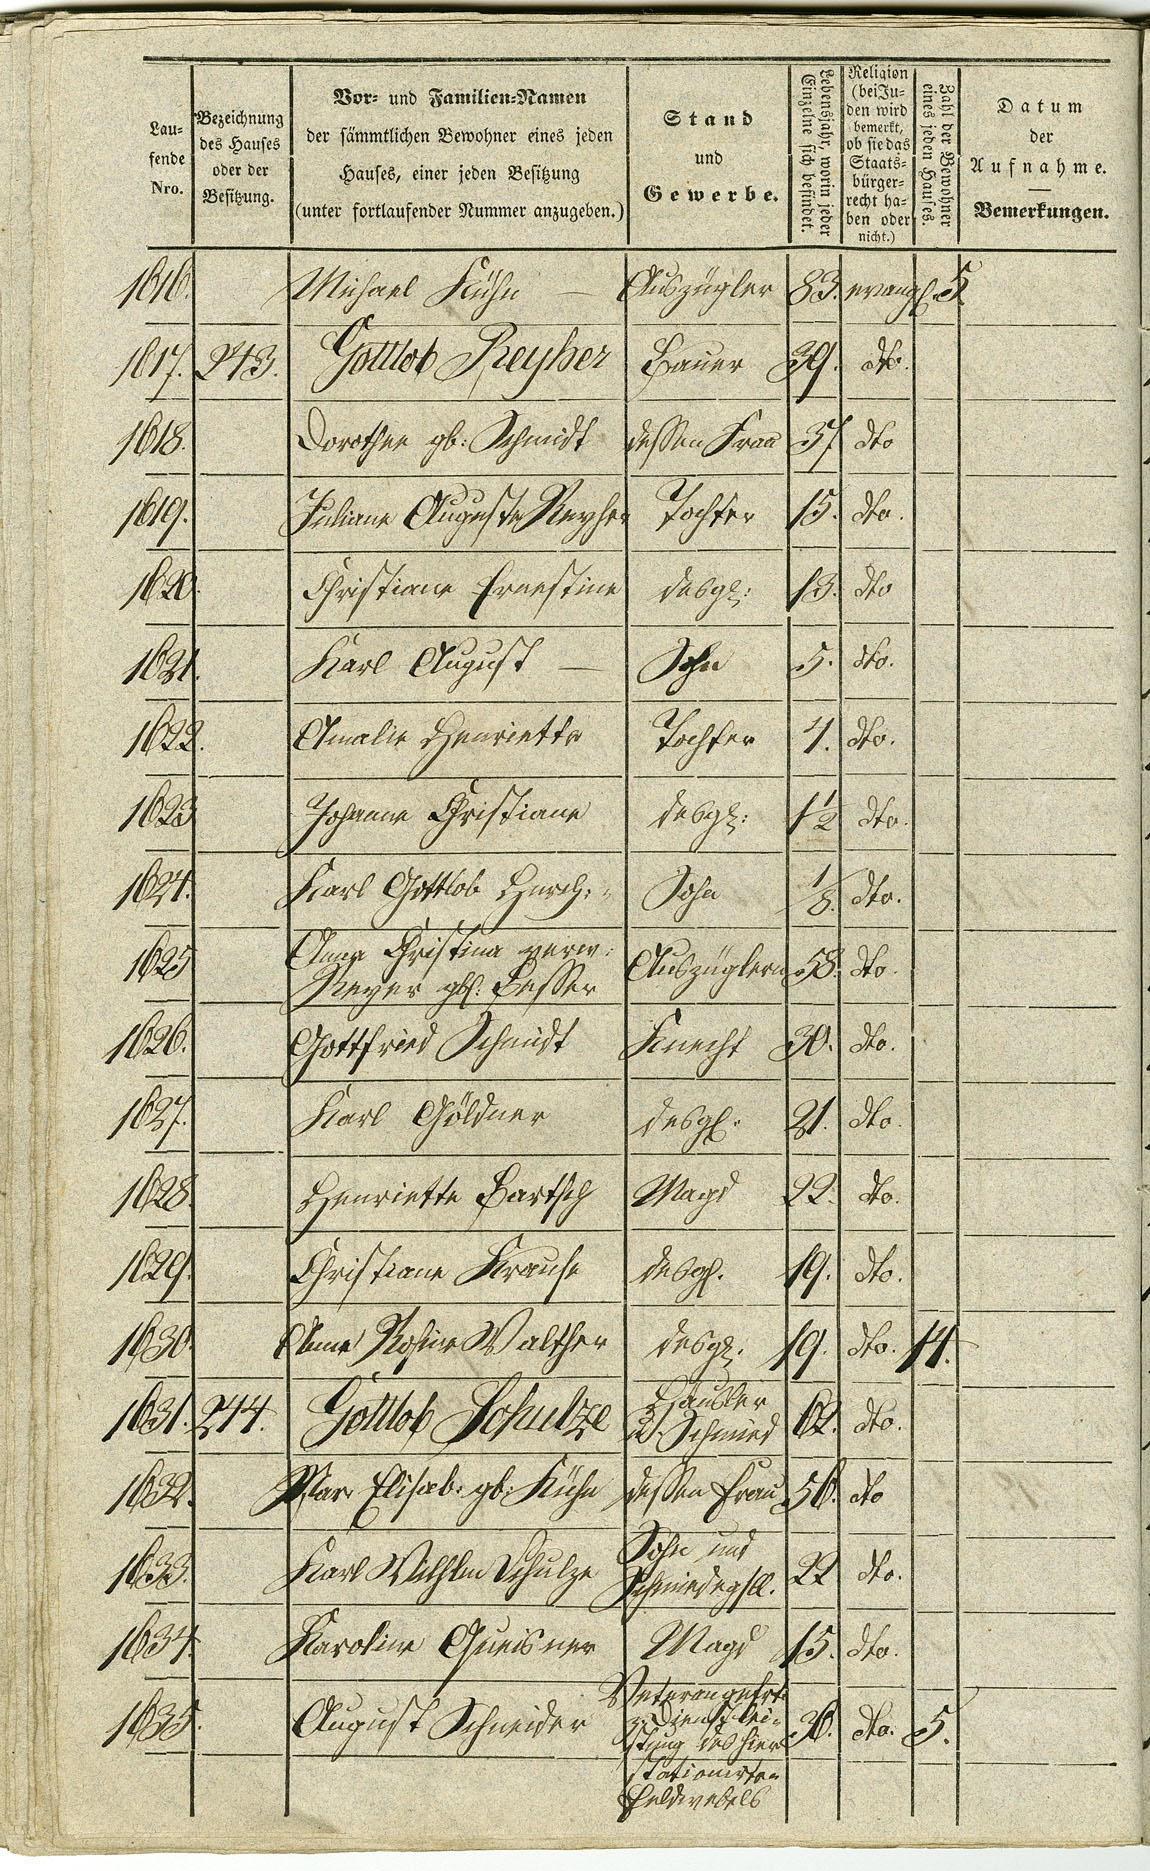 Lau-
fende
Nro.
Bezeichnung
des Hauses
oder der
Besitzung.
Vor- und Familien-Namen
der sämmtlichen Bewohner eines jeden
Hauses, einer jeden Besitzung
(unter fortlaufender Nummer anzugeben.)
Stand
und
Gewerbe.
Lebensjahr, worin jeder
Einzelne sich befindet.
Religion
(bei Ju-
den wird
bemerkt,
ob sie das
Staats-
bürger-
recht ha-
ben oder
nicht.)
Zahl der Bewohner
eines jeden Hauses.
Datum
der
Aufnahme.
Bemerkungen.
1616. Michael Kühn — Auszügler 83. evangl. 5
1617. 243. Gottlob Reyher Bauer 39. dto.
1618. Dorothee gb: Schmidt dessen Frau 37 dto
1619. Juliane Auguste Reyher Tochter 15. dto.
1620. Christiane Ernestine desgl: 13. dto
1621. Karl August — Sohn 5. dto.
1622. Amalie Henriette Tochter 4. dto.
1623 Johanne Christiane desgl: 1½ dto.
1624. Karl Gottlob Sohn 1/8. dto.
1625 Anna Christina verw:
Reyer gb: Besser Auszüglern 58. dto.
1626. Gottfried Schmidt Knecht 30. dto.
1627. Karl Göldner desgl. 21. dto.
1628. Henriette Bartsch Magd 22. dto.
1629. Christiane Krause desgl. 19. dto.
1630. Anne Rosine Walther desgl. 19. dto. 14.
1631. 244. Gottlob Schulze Häusler
u. Schmied 62. dto.
1632. Mar. Elisab: gb: Kühn dessen Frau 56. dto
1633. Karl Wilhlm Schulze Sohn und
Schmiedegsll. 22 dto.
1634. Karoline Queisner Magd 15. dto.
1635. August Schneider
z. Dienstlei-
stung des hier
stationirten
Feldwebels 36. dto. 5.